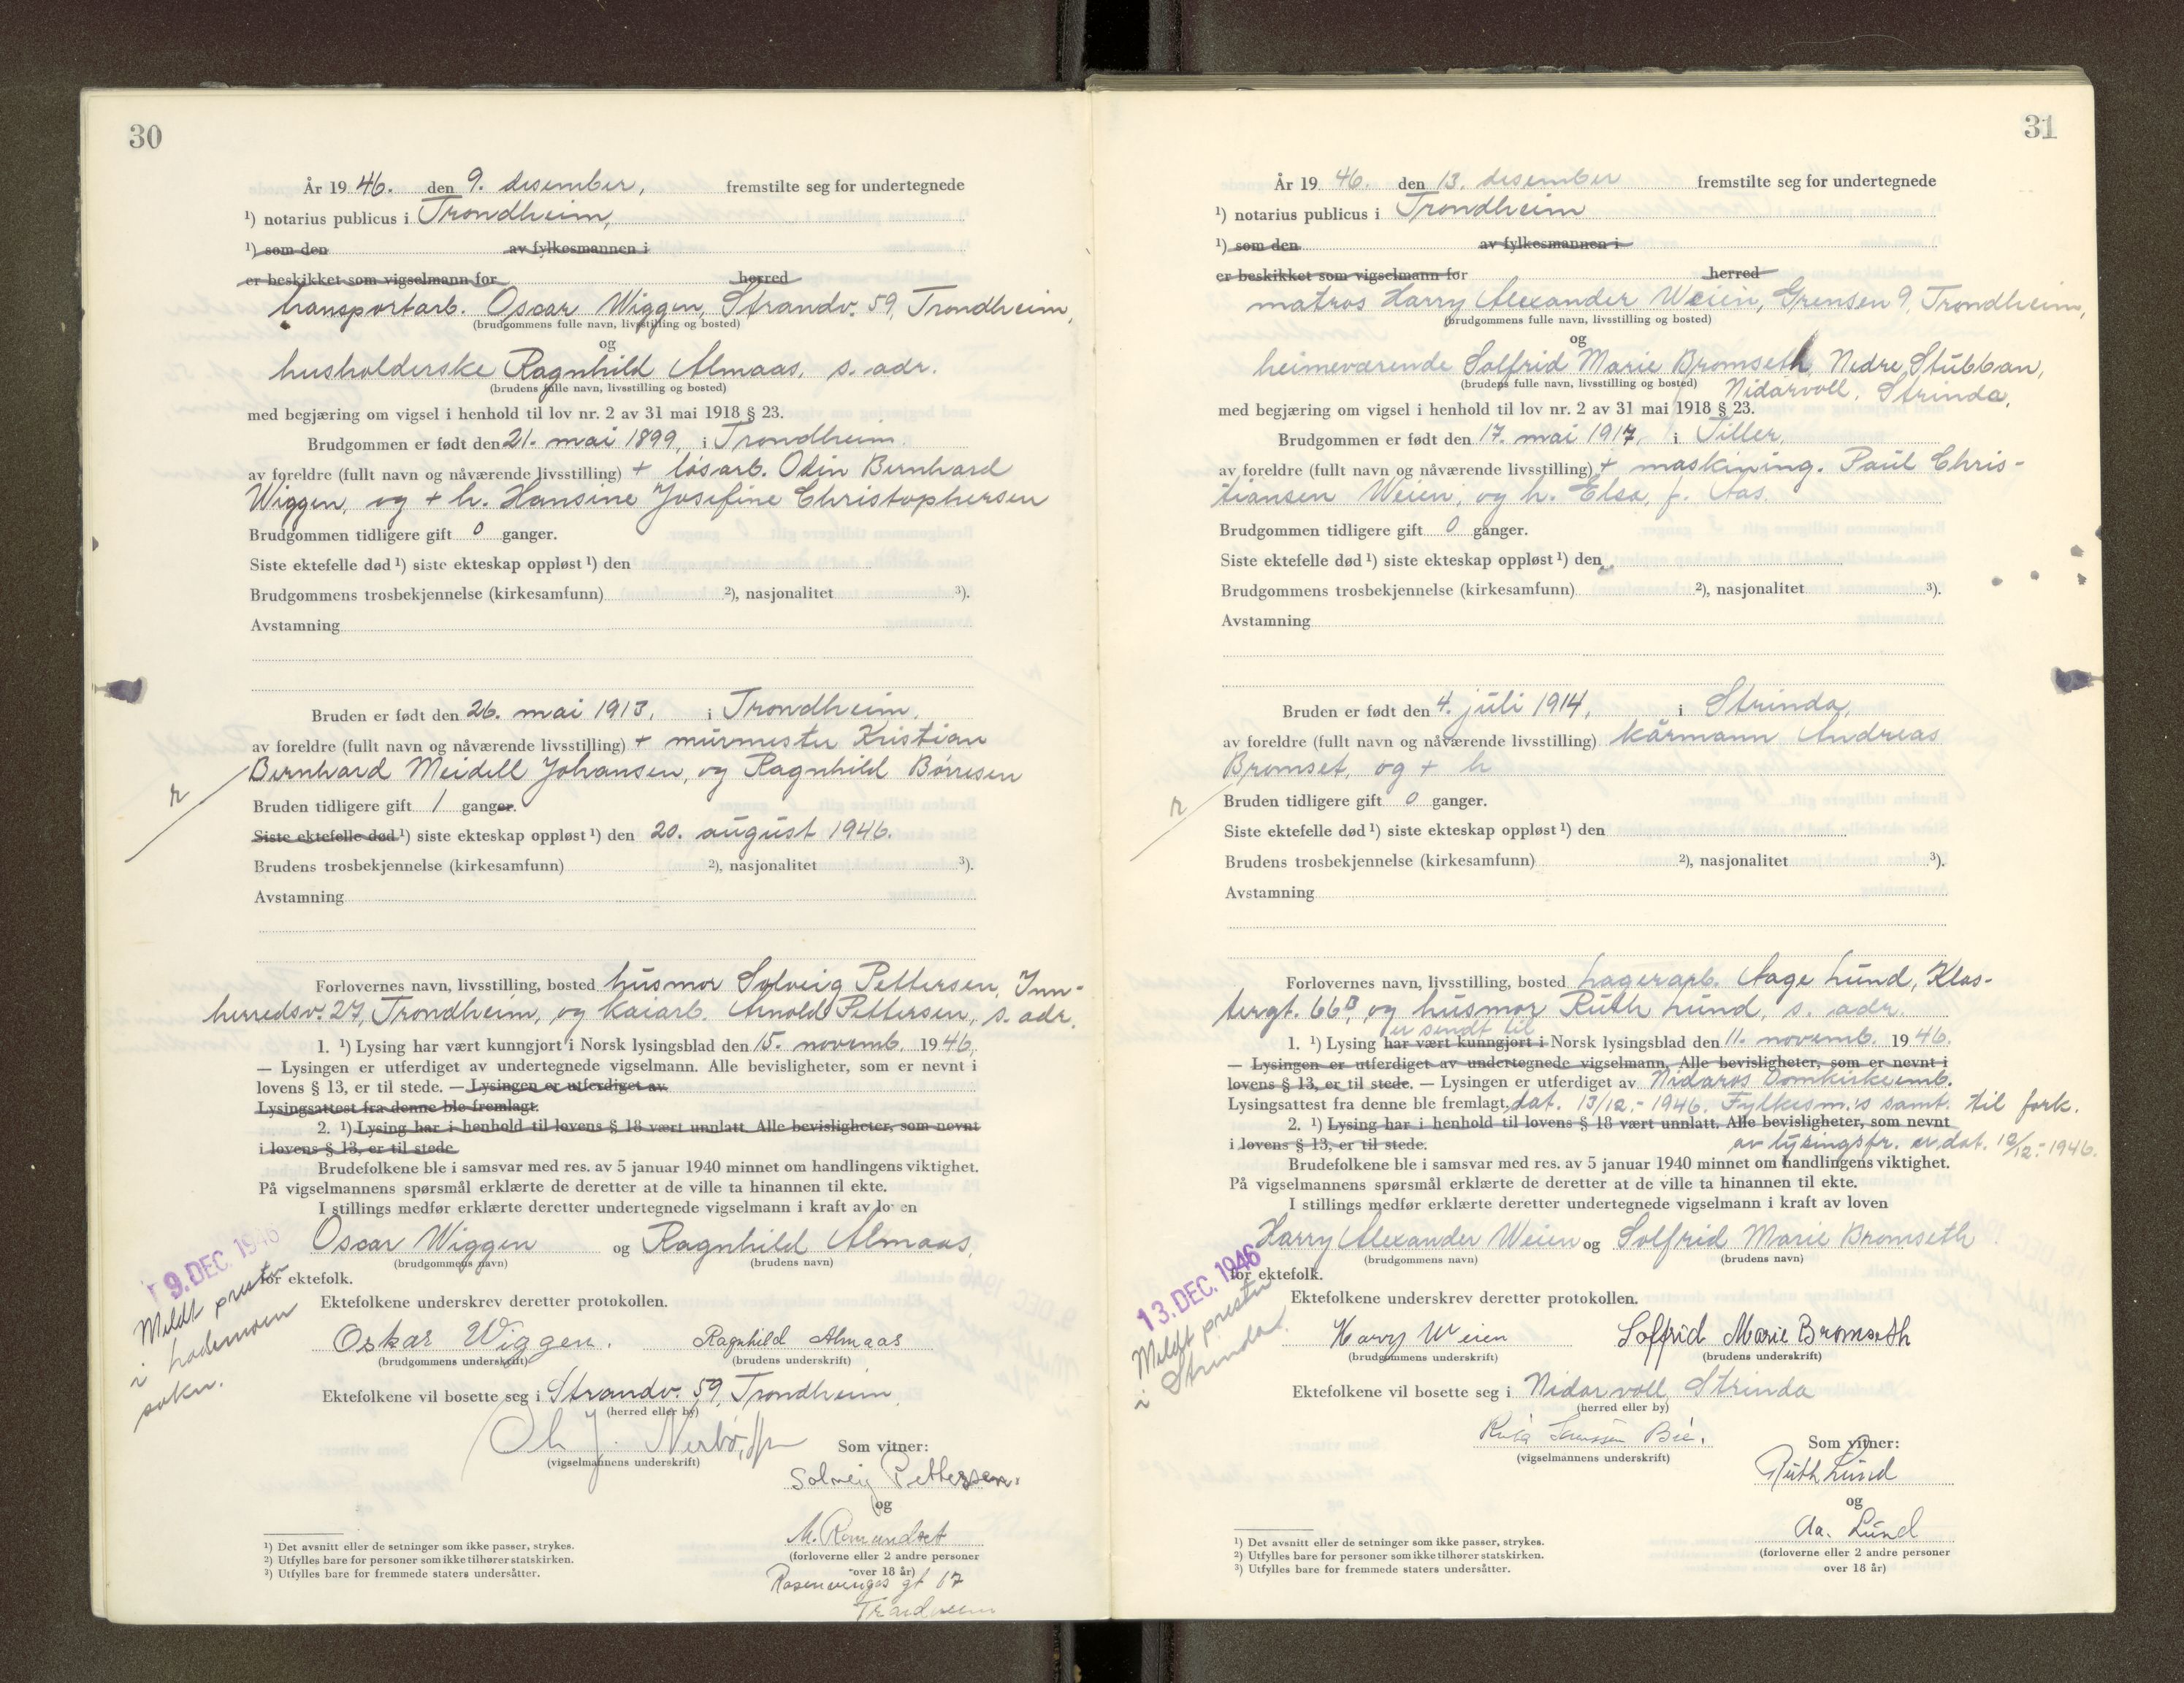 30
År 19 46. den 9. desember, fremstilte seg for undertegnede
¹) notarius publicus i Trondheim,
¹) som den av fylkesmannen i
er beskikket som vigselmann for herred
transportarb. Oscar Wiggen, Strandv. 59, Trondheim,
(brudgommens fulle navn, livsstilling og bosted)
og
husholderske Ragnhild Almaas, s. adr.
(brudens fulle navn, livsstilling og bosted)
med begjæring om vigsel i henhold til lov nr. 2 av 31 mai 1918 § 23.
Brudgommen er født den 21. mai 1899, i Trondheim.
av foreldre (fullt navn og nåværende livsstilling) + løsarb. Odin Bernhard
Wiggen, og + h. Hansine Josefine Christophersen
Brudgommen tidligere gift 0 ganger.
Siste ektefelle død ¹) siste ekteskap oppløst ¹) den
Brudgommens trosbekjennelse (kirkesamfunn) ²), nasjonalitet ³).
Avstamning
Bruden er født den 26. mai 1913, i Trondheim.
av foreldre (fullt navn og nåværende livsstilling) + murmester Kristian
Bernhard Meidell Johansen, og Ragnhild Børresen
Bruden tidligere gift 1 ganger.
Siste ektefelle død ¹) siste ekteskap oppløst ¹) den 20. august 1946.
Brudens trosbekjennelse (kirkesamfunn) ²), nasjonalitet ³).
Avstamning
Forlovernes navn, livsstilling, bosted husmor Solveig Pettersen, Inn-
herredsv. 27, Trondheim, og kaiarb. Arnold Pettersen, s. adr.
1. ¹) Lysing har vært kunngjort i Norsk lysingsblad den 15. novemb. 19 46.
— Lysingen er utferdiget av undertegnede vigselmann. Alle bevisligheter, som er nevnt i
lovens § 13, er til stede. — Lysingen er utferdiget av
Lysingsattest fra denne ble fremlagt.
2. ¹) Lysing har i henhold til lovens § 18 vært unnlatt Alle bevisligheter, som nevnt
i lovens § 13, er til stede.
Brudefolkene ble i samsvar med res. av 5 januar 1940 minnet om handlingens viktighet.
På vigselmannens spørsmål erklærte de deretter at de ville ta hinannen til ekte.
I stillings medfør erklærte deretter undertegnede vigselmann i kraft av loven
Oscar Wiggen og Ragnhild Almaas,
(brudgommens navn) (brudens navn)
for ektefolk.
9. DEC. 1946
Meldt presten
i Lademoen
sokn.
Ektefolkene underskrev deretter protokollen.
Oskar Wiggen. Ragnhild Almaas
(brudgommens underskrift) (brudens underskrift)
Ektefolkene vil bosette seg i Strandv. 59, Trondheim.
(herred eller by)
(vigselmannens underskrift) Som vitner:
Solveig Pettersen.
og
M. Romundset
(forloverne eller 2 andre personer
over 18 år)
Rosenvinges gt 17
Trondheim
¹) Det avsnitt eller de setninger som ikke passer, strykes.
²) Utfylles bare for personer som ikke tilhører statskirken.
³) Utfylles bare for fremmede staters undersåtter.
31
År 19 46. den 13. desember fremstilte seg for undertegnede
¹) notarius publicus i Trondheim
¹) som den av fylkesmannen i
er beskikket som vigselmann for herred
matros Harry Alexander Weien, Grensen 9, Trondheim,
(brudgommens fulle navn, livsstilling og bosted)
og
heimeværende Solfrid Marie Bromseth, Nedre Stubban,
(brudens fulle navn, livsstilling og bosted) Nidarvoll, Strinda,
med begjæring om vigsel i henhold til lov nr. 2 av 31 mai 1918 § 23.
Brudgommen er født den 17. mai 1917, i Tiller.
av foreldre (fullt navn og nåværende livsstilling) + maskining. Paul Chris-
tiansen Weien, og h. Elsa, f. Aas.
Brudgommen tidligere gift 0 ganger.
Siste ektefelle død ¹) siste ekteskap oppløst ¹) den
Brudgommens trosbekjennelse (kirkesamfunn) ²), nasjonalitet ³).
Avstamning
Bruden er født den 4. juli 1914, i Strinda,
av foreldre (fullt navn og nåværende livsstilling) kårmann Andreas
Bromset, og + h
Bruden tidligere gift 0 ganger.
Siste ektefelle død ¹) siste ekteskap oppløst ¹) den
Brudens trosbekjennelse (kirkesamfunn) ²), nasjonalitet ³).
Avstamning
Forlovernes navn, livsstilling, bosted lagerarb. Aage Lund, Klos-
tergt. 66B, og husmor Ruth Lund, s. adr.
er sendt til
1. ¹) Lysing har vært kunngjort i Norsk lysingsblad den 11. novemb. 19 46.
— Lysingen er utferdiget av undertegnede vigselmann. Alle bevisligheter, som er nevnt i
lovens § 13, er til stede. — Lysingen er utferdiget av Nidaros Domkirkeemb.
Lysingsattest fra denne ble fremlagt, dat. 13/12.- 1946. Fylkesm.'s samt. til fork.
2. ¹) Lysing har i henhold til lovens § 18 vært unnlatt. Alle bevisligheter, som nevnt
i lovens § 13, er til stede. av lysingsfr. er dat. 12/12.- 1946.
Brudefolkene ble i samsvar med res. av 5 januar 1940 minnet om handlingens viktighet.
På vigselmannens spørsmål erklærte de deretter at de ville ta hinannen til ekte.
I stillings medfør erklærte deretter undertegnede vigselmann i kraft av loven
Harry Alexander Weien og Solfrid Marie Bromseth
(brudgommens navn) (brudens navn)
for ektefolk.
13. DEC. 1946
Meldt presten
i Strinda.
Ektefolkene underskrev deretter protokollen.
Harry Weien Solfrid Marie Bromseth
(brudgommens underskrift) (brudens underskrift)
Ektefolkene vil bosette seg i Nidarvoll, Strinda
(herred eller by)
(vigselmannens underskrift) Som vitner:
Ruth Lund
og
Aa. Lund
(forloverne eller 2 andre personer
over 18 år)
¹) Det avsnitt eller de setninger som ikke passer, strykes.
²) Utfylles bare for personer som ikke tilhører statskirken.
³) Utfylles bare for fremmede staters undersåtter.